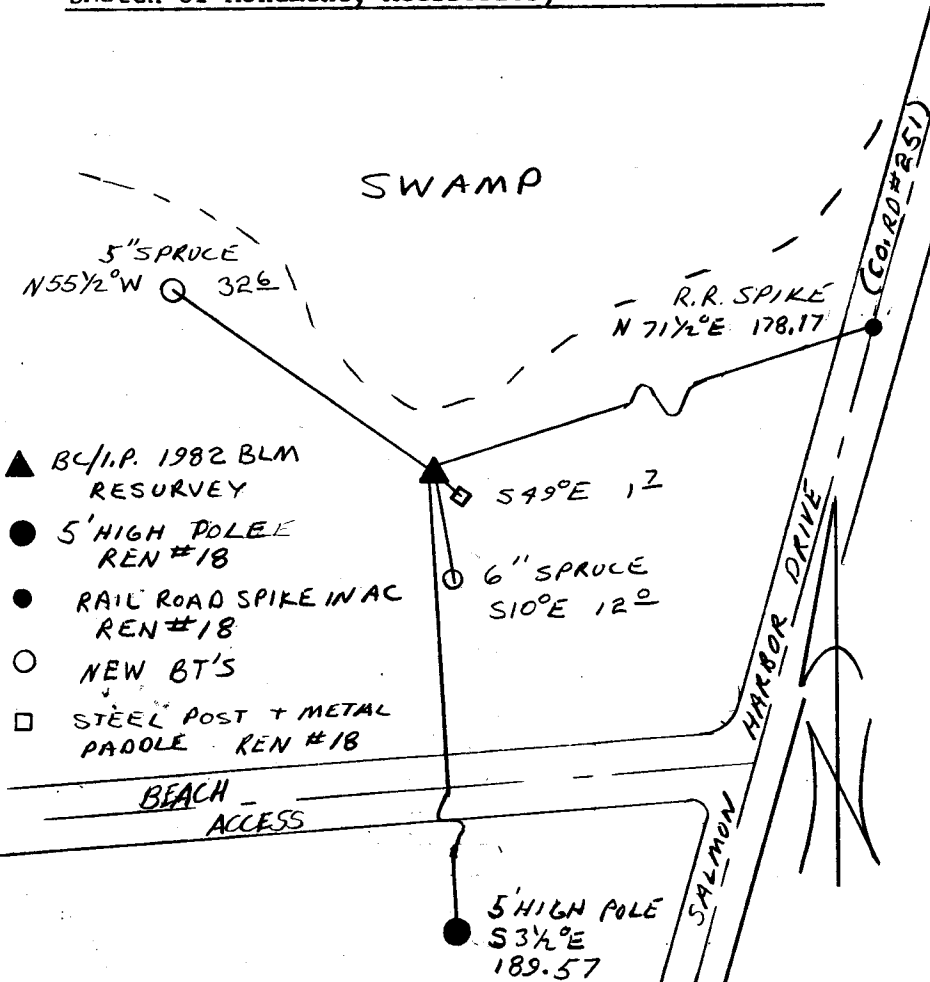 SWAMP
5" SPRUCE
N55½°W 32 6
R.R. SPIKE
N 71½°E 178.17
(CO. RD #251)
BC/I.P. 1982 BLM
RESURVEY
5' HIGH POLEE
REN #18
RAIL ROAD SPIKE IN AC
REN #18
NEW BT'S
STEEL POST + METAL
PADOLE REN #18
S49°E 1 7
6" SPRUCE
S10°E 12 0
SALMON HARBOR DRIVE
BEACH
ACCESS
5' HIGH POLE
S 3½°E
189.57
N